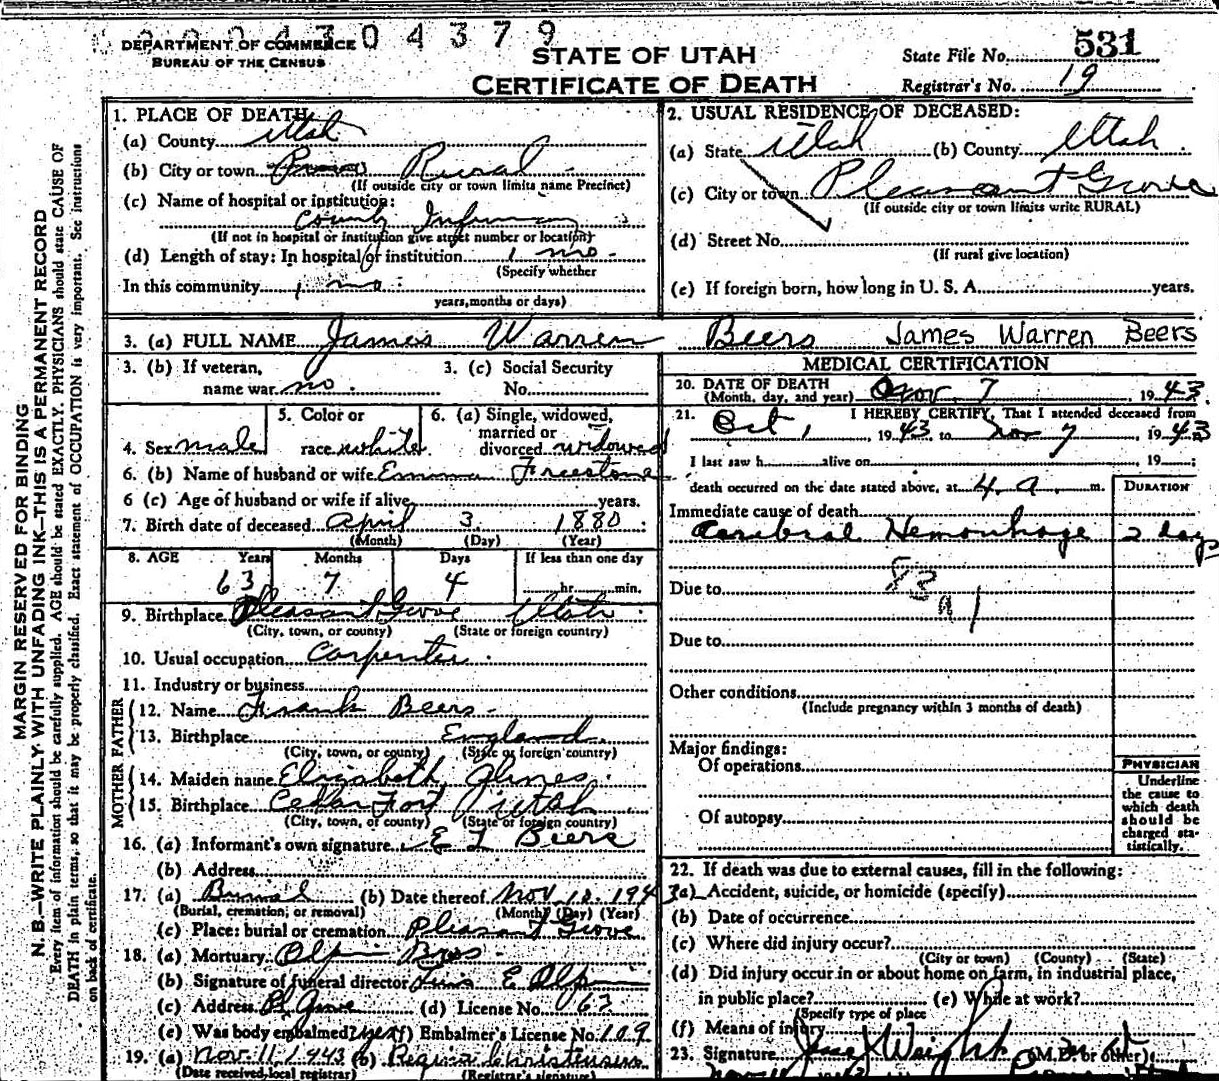 0004304379
DEPARTMENT OF COMMERCE
BUREAU OF THE CENSUS
STATE OF UTAH
CERTIFICATE OF DEATH
State File No. 531
Registrar's No. 19
MARGIN RESERVED FOR BINDING
N. B.—WRITE PLAINLY WITH UNFADING INK—THIS IS A PERMANENT RECORD
Every item of information should be carefully supplied. AGE should be stated EXACTLY. PHYSICIANS should state CAUSE OF
DEATH in plain terms, so that it may be properly classified. Exact statement of OCCUPATION is very important. See instructions
on back of certificate.
1. PLACE OF DEATH:
(a) County Utah
(b) City or town Rural
(If outside city or town limits name Precinct)
(c) Name of hospital or institution:
County Infirmary
(If not in hospital or institution give street number or location)
(d) Length of stay: In hospital or institution 1 mo.
(Specify whether
In this community 1 mo.
years, months or days)
2. USUAL RESIDENCE OF DECEASED:
(a) State Utah (b) County Utah
(c) City or town Pleasant Grove
(If outside city or town limits write RURAL)
(d) Street No.
(If rural give location)
(e) If foreign born, how long in U. S. A. years.
3. (a) FULL NAME James Warren Beers James Warren Beers
3. (b) If veteran, name war no.
3. (c) Social Security No.
4. Sex male
5. Color or race white
6. (a) Single, widowed, married or divorced widowed
6. (b) Name of husband or wife Emma Freestone
6 (c) Age of husband or wife if alive years.
7. Birth date of deceased April 3 1880
(Month) (Day) (Year)
8. AGE Years Months Days If less than one day
63 7 4 hr. min.
9. Birthplace Pleasant Grove Utah
(City, town, or county) (State or foreign country)
10. Usual occupation Carpenter
11. Industry or business
FATHER
12. Name Frank Beers
13. Birthplace England
(City, town, or county) (State or foreign country)
MOTHER
14. Maiden name Elizabeth Glines
15. Birthplace Cedar Fort Utah
(City, town, or county) (State or foreign country)
16. (a) Informant's own signature E L Beers
(b) Address
17. (a) Burial (b) Date thereof Nov. 10. 1943
(Burial, cremation, or removal) (Month) (Day) (Year)
(c) Place: burial or cremation Pleasant Grove
18. (a) Mortuary Olpin Bros
(b) Signature of funeral director E Olpin
(c) Address Pl Grove (d) License No. 67
(e) Was body embalmed? yes (f) Embalmer's License No. 109
19. (a) Nov. 11, 1943 (b) Regina Christensen
(Date received local registrar) (Registrar's signature)
MEDICAL CERTIFICATION
20. DATE OF DEATH
(Month, day, and year) Nov. 7 1943
21. I HEREBY CERTIFY, That I attended deceased from
Oct 1, 1943 to Nov 7, 1943
I last saw h alive on 19 ;
death occurred on the date stated above, at 4 a. m.
DURATION
Immediate cause of death
Cerebral Hemorrhage 2 days
Due to 83 a 1
Due to
Other conditions
(Include pregnancy within 3 months of death)
Major findings:
Of operations
Of autopsy
PHYSICIAN
Underline
the cause to
which death
should be
charged sta-
tistically.
22. If death was due to external causes, fill in the following:
(a) Accident, suicide, or homicide (specify)
(b) Date of occurrence
(c) Where did injury occur?
(City or town) (County) (State)
(d) Did injury occur in or about home on farm, in industrial place,
in public place? (e) While at work?
(Specify type of place
(f) Means of injury
23. Signature Weight (M.D. or other)